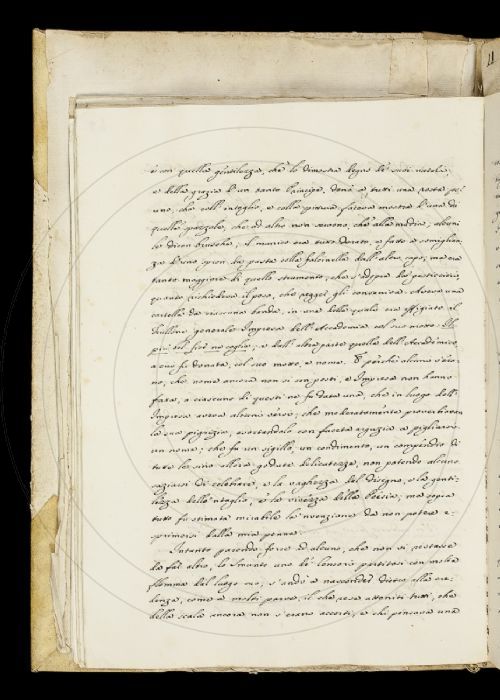 è con quella gentilezza, che lo dimostra degno de' suoi natali,
e della grazia d'un tanto Principe, donò a tutti una rosta per
uno, che coll'intaglio, e colla pittura faceva mostra d'una di
quelle che ad altro non servono, che alla madia; alcuni
lo dicon il manico era tutto dorato, e fatto a somiglian
za d'uno colla falcinella dall'altro capo; ma era
tanto maggiore di quello strumento, che s'adopra da'
quanto richiedeva il peso, che regger gli conveniva. Aveva una
cartella da ciascuna banda, in una delle quali era effigiato il
Frullone generale Impresa dell'Accademia col suo motto: Il
più bel fior ne coglie; e dall'altra parte quella dell'Accademico,
a cui fu donata, col suo motto, e nome. E perchè alcuni v'era
no, che nome ancora non si son posti, e Impresa non hanno
fatta, a ciascuno di questi ne fu data una, che in luogo dell'
Impresa aveva alcuni versi, che moderatamente proverbiavan
la sua pigrizia, esortandolo con faceta arguzia a pigliarsi
un nome; che fu un sigillo, un condimento, un compendio di
tutte le sino allora godute delicatezze, non potendo alcuno
saziarsi di celebrare, e la vaghezza del disegno, e la genti-
lezza dello 'ntaglio, e la vivezza della Poesia; ma sopra
tutto fu stimata mirabile la 'nvenzione da non poter e-
sprimersi dalla mia penna.
Intanto parendo forse ad alcuno, che non vi restasse
da far altro, lo Smunto uno de' Censori partitosi con molta
flemma del luogo suo, s'andò a nascondere dietro alla cre-
denza, come a molti parve, il che rese attoniti tutti, che
della scala ancora non s'erano accorti, e chi pensava una